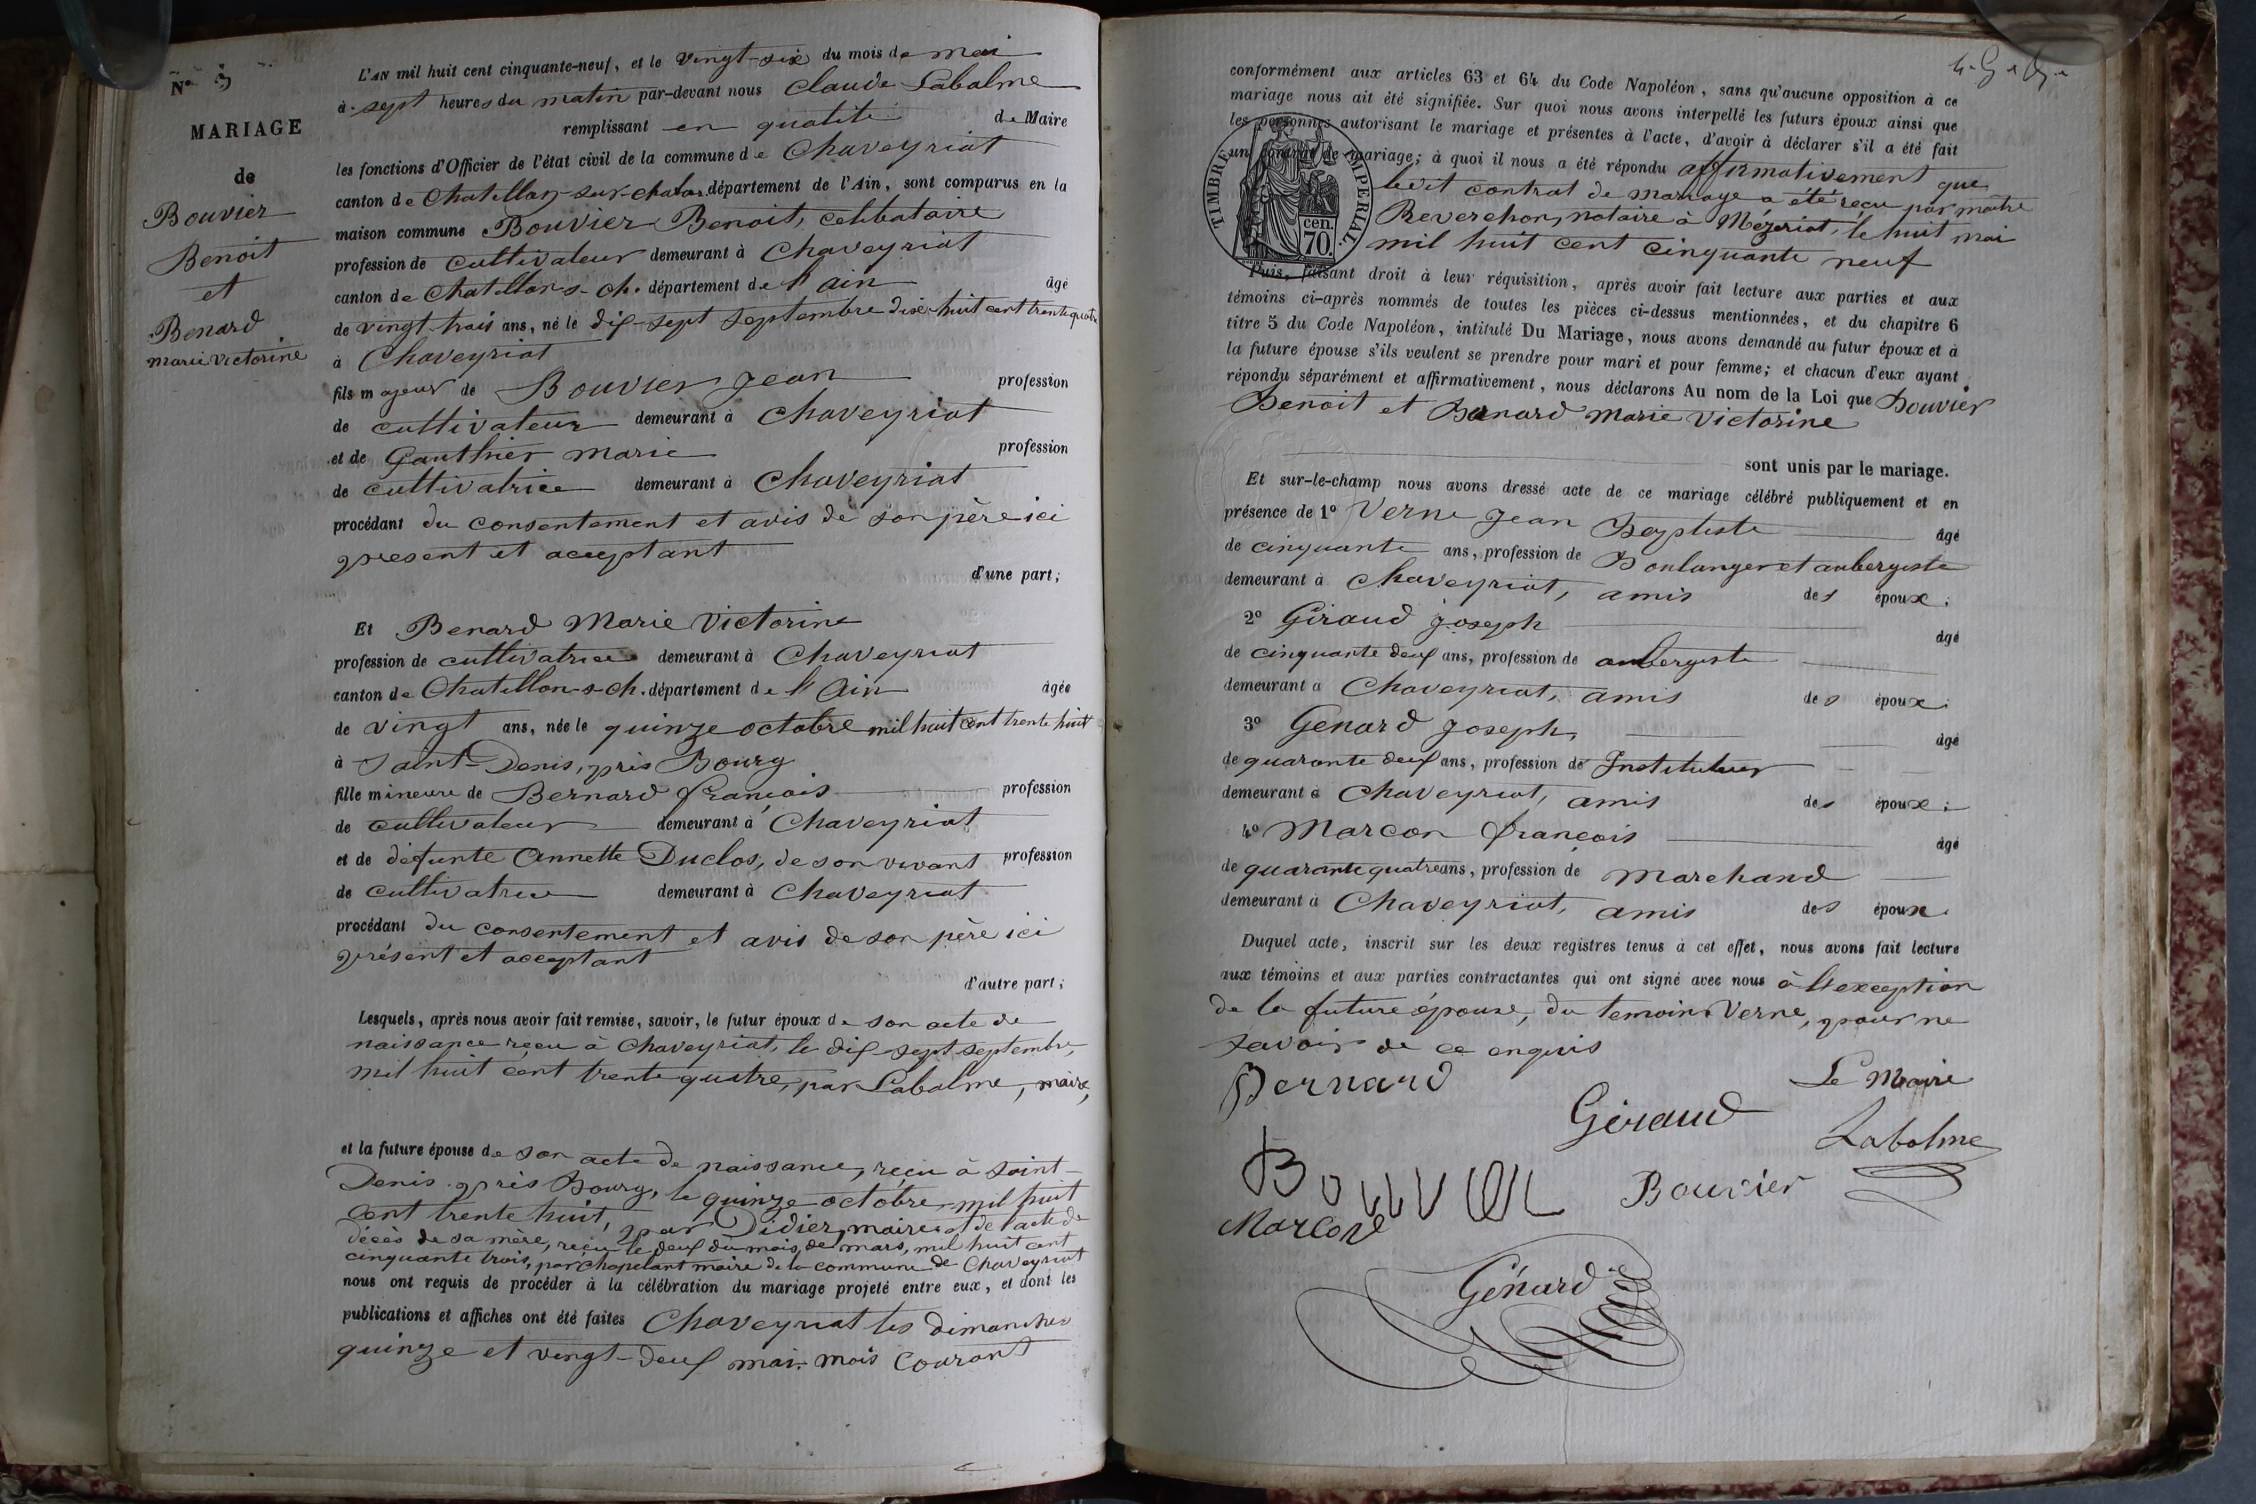 N° 5
MARIAGE
de
Bouvier
Benoit
et
Benard
Marie Victorine
L'AN mil huit cent cinquante-neuf, et le vingt-six du mois de mai
à sept heures du matin par-devant nous Claude Labalme
remplissant en qualité de Maire
les fonctions d'Officier de l'état civil de la commune de Chaveyriat
canton de Chatillon-sur-chalar. département de l'Ain, sont comparus en la
maison commune Bouvier Benoit, celibataire
profession de cultivateur demeurant à Chaveyriat
canton de Chatillon-s-ch. département de l'ain âgé
de vingt-trois ans, né le dix-sept septembre dix-huit cent trente quatre
à Chaveyriat
fils majeur de Bouvier Jean profession
de cultivateur demeurant à Chaveyriat
et de Gauthier Marie profession
de cultivatrice demeurant à Chaveyriat
procédant du consentement et avis de son père ici
present et acceptant
d'une part;
Et Benard Marie Victorine
profession de cultivatrice demeurant à Chaveyriat
canton de Chatillon-s-ch. département de l'Ain âgée
de vingt ans, née le quinze octobre mil huit cent trente huit
à Saint-Denis, près Bourg
fille mineure de Bernard françois profession
de cultivateur demeurant à Chaveyriat
et de défunte Annette Duclos, de son vivant profession
de cultivatrice demeurant à Chaveyriat
procédant du consentement et avis de son père ici
présent et acceptant
d'autre part;
Lesquels, après nous avoir fait remise, savoir, le futur époux de son acte de
naissance reçu à Chaveyriat, le dix-sept septembre
mil huit cent trente quatre, par Labalme, maire,
et la future épouse de son acte de naissance, reçu à Saint-
Denis près Bourg, le quinze octobre mil huit
cent trente huit, par Didier, maire et de l'acte de
décès de sa mère, reçu le deux du mois de mars, mil huit cent
cinquante trois, par Chapelant maire de la commune de Chaveyriat
nous ont requis de procéder à la célébration du mariage projeté entre eux, et dont les
publications et affiches ont été faites Chaveyriat les dimanches
quinze et vingt-deux mai, mois courant
conformément aux articles 63 et 64 du Code Napoléon, sans qu'aucune opposition à ce
mariage nous ait été signifiée. Sur quoi nous avons interpellé les futurs époux ainsi que
les personnes autorisant le mariage et présentes à l'acte, d'avoir à déclarer s'il a été fait
un contrat de mariage; à quoi il nous a été répondu affirmativement que
ledit contrat de mariage a été reçu par maitre
Reverchon, notaire à Mézériat, le huit mai
mil huit cent cinquante neuf
TIMBRE IMPERIAL.
cen.
70.
Puis, faisant droit à leur réquisition, après avoir fait lecture aux parties et aux
témoins ci-après nommés de toutes les pièces ci-dessus mentionnées, et du chapitre 6
titre 5 du Code Napoléon, intitulé Du Mariage, nous avons demandé au futur époux et à
la future épouse s'ils veulent se prendre pour mari et pour femme; et chacun d'eux ayant
répondu séparément et affirmativement, nous déclarons Au nom de la Loi que Bouvier
Benoit et Benard Marie Victorine
sont unis par le mariage.
Et sur-le-champ nous avons dressé acte de ce mariage célébré publiquement et en
présence de 1° Verne Jean Baptiste âgé
de cinquante ans, profession de Boulanger et aubergiste
demeurant à Chaveyriat, amis des époux;
2° Giraud Joseph âgé
de cinquante deux ans, profession de aubergiste
demeurant à Chaveyriat, amis des époux;
3° Genard Joseph, âgé
de quarante deux ans, profession de Instituteur
demeurant à Chaveyriat, amis des époux;
4° Marcon françois âgé
de quarante quatre ans, profession de Marchand
demeurant à Chaveyriat, amis des époux.
Duquel acte, inscrit sur les deux registres tenus à cet effet, nous avons fait lecture
aux témoins et aux parties contractantes qui ont signé avec nous à l'exception
de la future épouse, du temoin Verne, pour ne
savoir de ce enquis
Bernard
Le Maire
Giraud
Labalme
Bouvier
Bouvier
Marcon
Génard